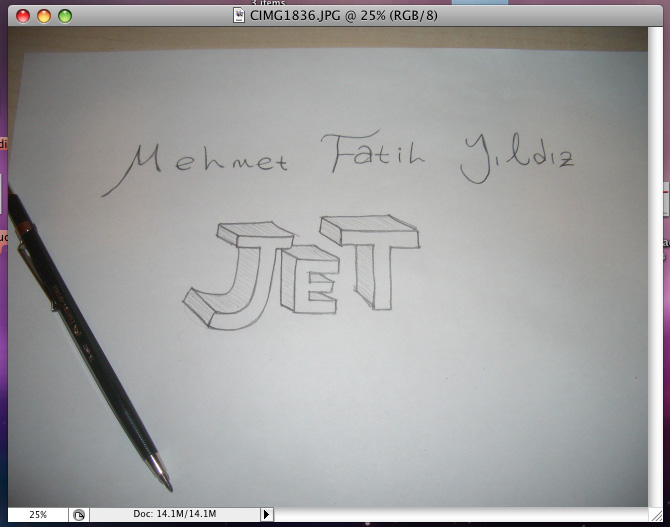 3 items
CIMG1836.JPG @ 25% (RGB/8)
Mehmet Fatih Yıldız
JET
25%
Doc: 14.1M/14.1M